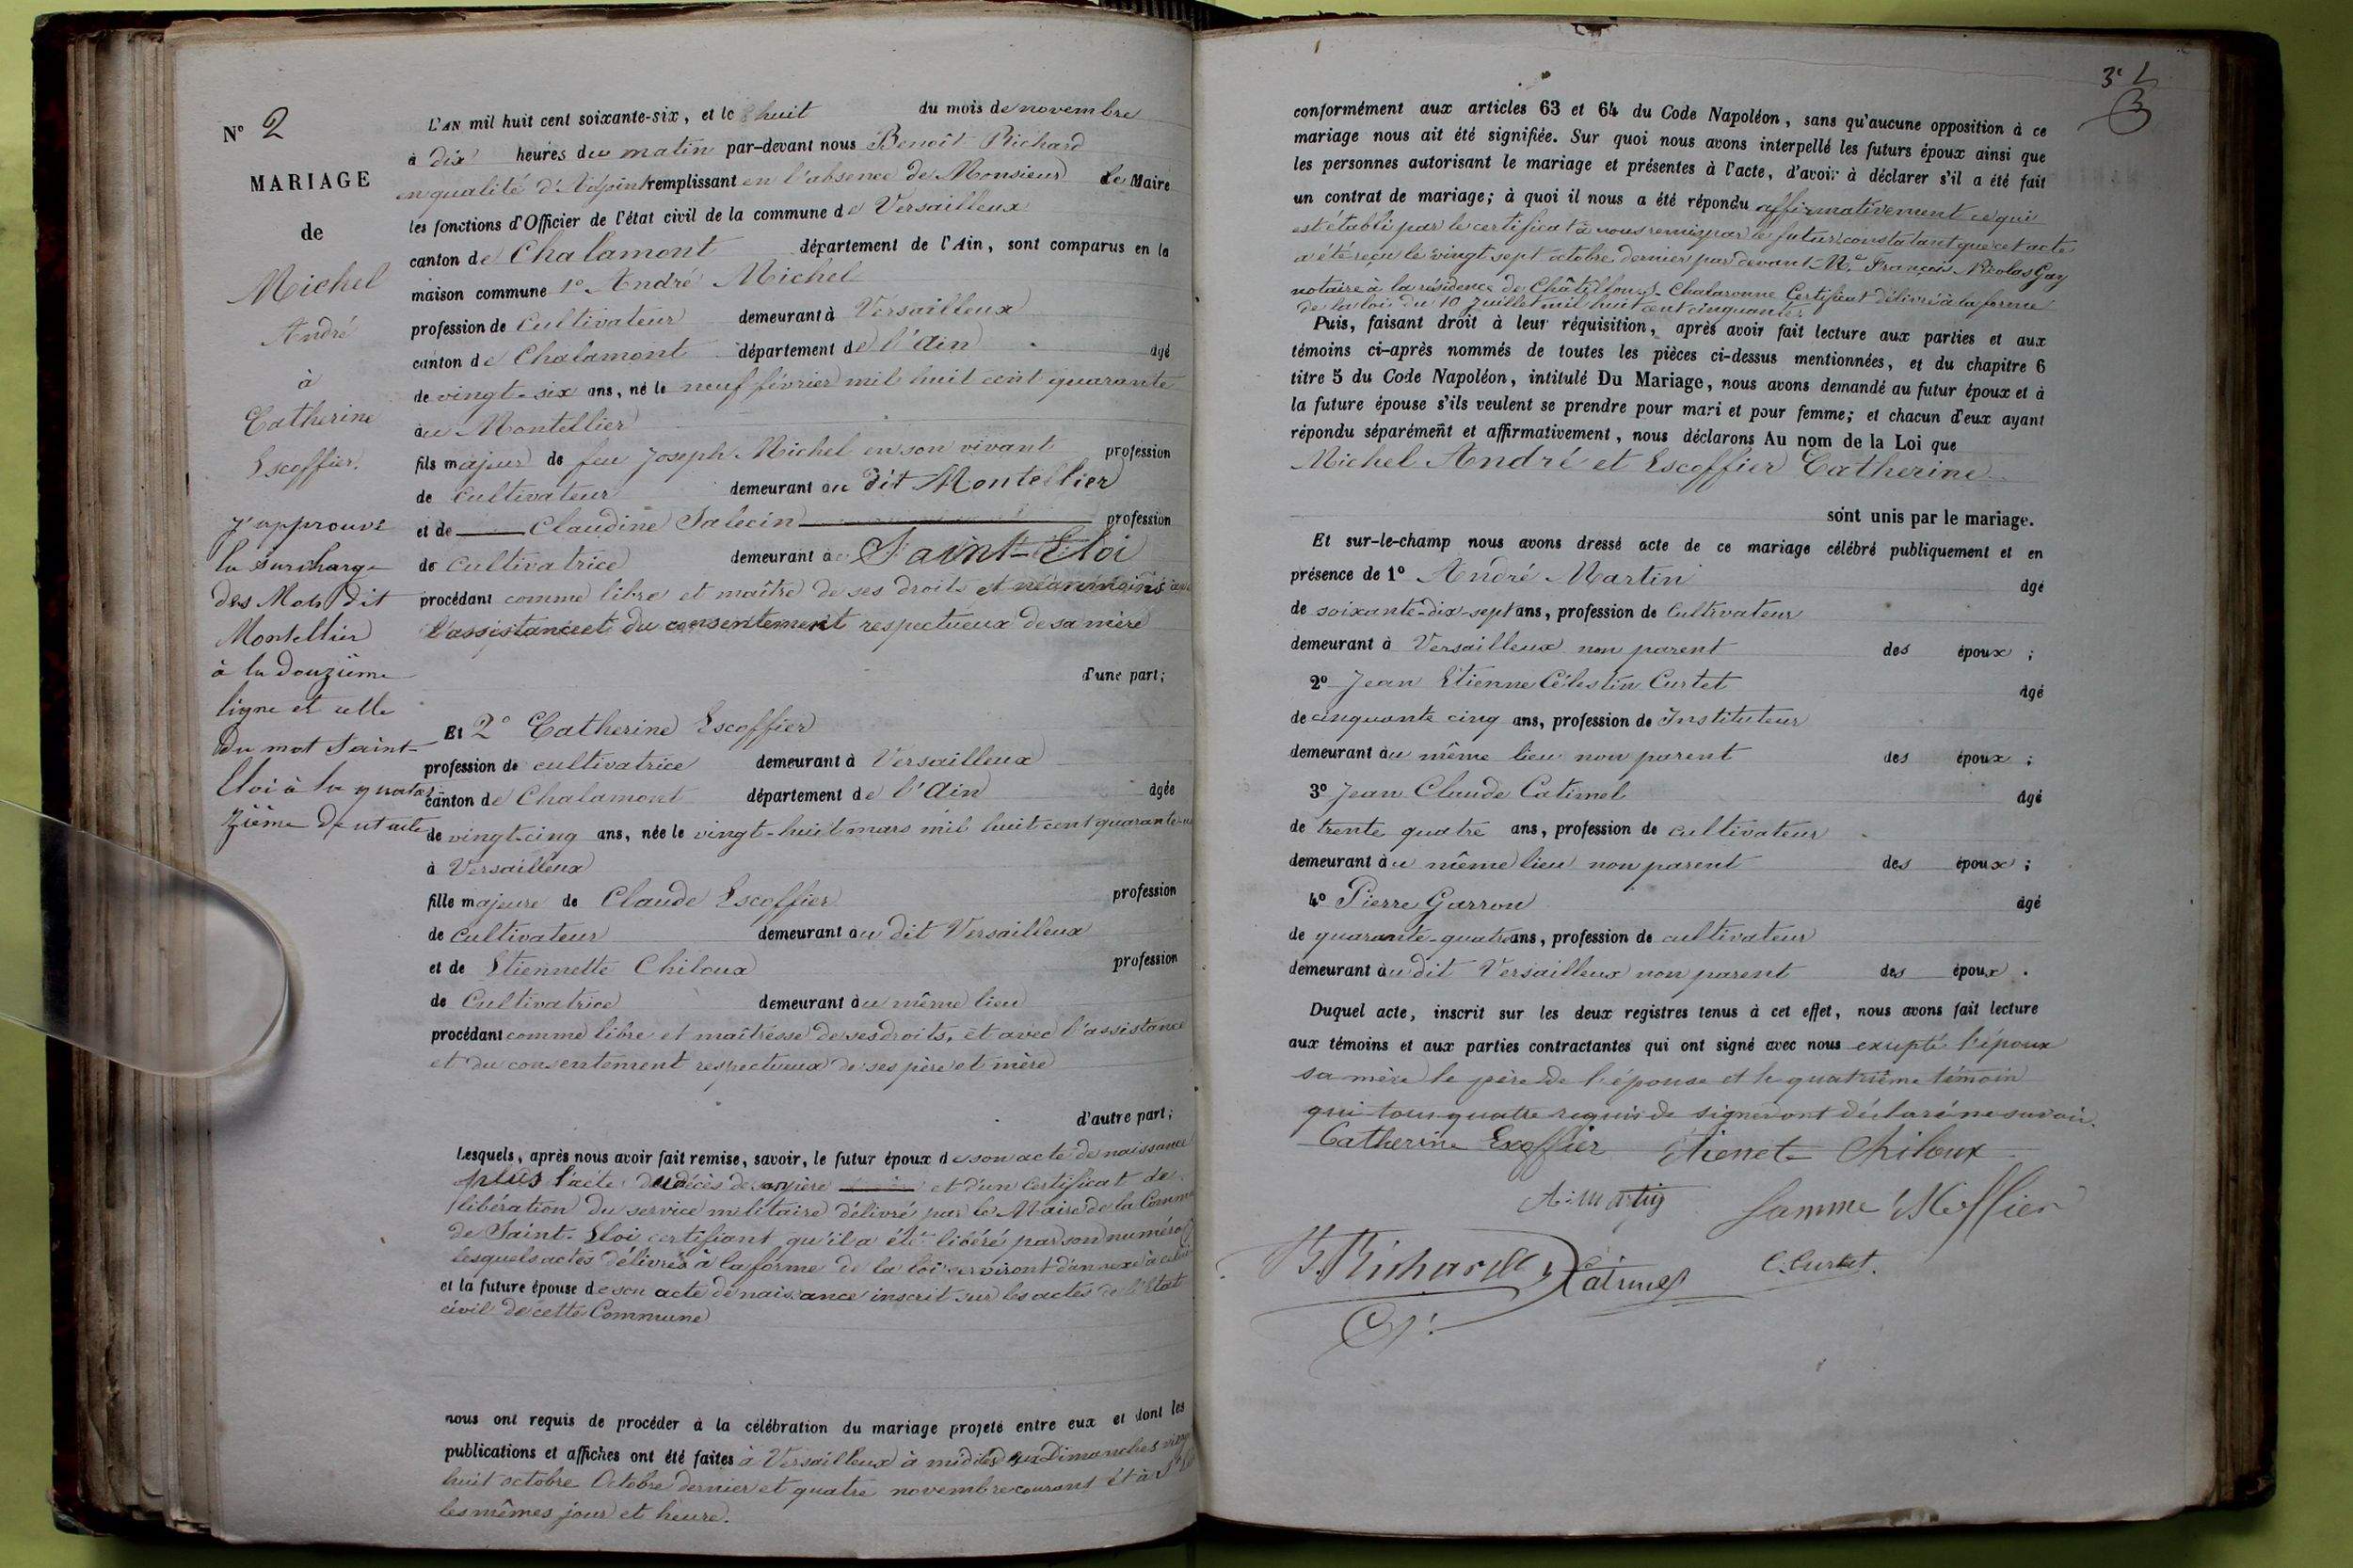 N° 2
MARIAGE
de
Michel
André
à
Catherine
Escoffier.
J'approuve
la surcharge
des Mots dit
Montellier
à la douzième
ligne et celle
du mot Saint-
Eloi à la quator
zième de cet acte
L'AN mil huit cent soixante-six, et le huit du mois de novembre
à dix heures du matin par-devant nous Benoît Richard
en qualité d'Adjoint remplissant en l'absence de Monsieur Le Maire
les fonctions d'Officier de l'état civil de la commune de Versailleux
canton de Chalamont département de l'Ain, sont comparus en la
maison commune 1° André Michel
profession de cultivateur demeurant à Versailleux
canton de Chalamont département de l'Ain âgé
de vingt-six ans, né le neuf février mil huit cent quarante
au Montellier
fils majeur de feu Joseph Michel en son vivant profession
de cultivateur demeurant au dit Montellier
et de Claudine Salecin profession
de cultivatrice demeurant à Saint-Eloi
procédant comme libre et maître de ses droits et néanmoins
l'assistance et du consentement respectueux de sa mère
d'une part;
Et 2° Catherine Escoffier
profession de cultivatrice demeurant à Versailleux
canton de Chalamont département de l'Ain âgée
de vingt-cinq ans, née le vingt-huit mars mil huit cent quarante-un
à Versailleux
fille majeure de Claude Escoffier profession
de cultivateur demeurant au dit Versailleux
et de Etiennette Chiloux profession
de Cultivatrice demeurant au même lieu
procédant comme libre et maîtresse de ses droits, et avec l'assistance
et du consentement respectueux de ses père et mère
d'autre part;
Lesquels, après nous avoir fait remise, savoir, le futur époux de son acte de naissance
plus l'acte du décès de son père et d'un certificat de
libération du service militaire délivré par le Maire de la Commune
de Saint-Eloi certifiant qu'il a été libéré par son numéro
lesquels actes délivrés à la forme de la loi serviront d'annexe à celui
et la future épouse de son acte de naissance inscrit sur les actes de l'Etat
civil de cette Commune
nous ont requis de procéder à la célébration du mariage projeté entre eux et dont les
publications et affiches ont été faites à Versailleux à midi les deux Dimanches vingt
huit octobre Octobre dernier et quatre novembre courant et à St
les mêmes jour et heure.
3
conformément aux articles 63 et 64 du Code Napoléon, sans qu'aucune opposition à ce
mariage nous ait été signifiée. Sur quoi nous avons interpellé les futurs époux ainsi que
les personnes autorisant le mariage et présentes à l'acte, d'avoir à déclarer s'il a été fait
un contrat de mariage; à quoi il nous a été répondu affirmativement ce qui
est établi par le certificat à nous remis par le futur constatant que cet acte
a été reçu le vingt sept octobre dernier par devant Me François Nicolas Gay
notaire à la résidence de Châtillon-s-Chalaronne Certificat délivré à la forme
de la loi du 10 Juillet mil huit cent cinquante.
Puis, faisant droit à leur réquisition, après avoir fait lecture aux parties et aux
témoins ci-après nommés de toutes les pièces ci-dessus mentionnées, et du chapitre 6
titre 5 du Code Napoléon, intitulé Du Mariage, nous avons demandé au futur époux et à
la future épouse s'ils veulent se prendre pour mari et pour femme; et chacun d'eux ayant
répondu séparément et affirmativement, nous déclarons Au nom de la Loi que
Michel André et Escoffier Catherine
sont unis par le mariage.
Et sur-le-champ nous avons dressé acte de ce mariage célébré publiquement et en
présence de 1° André Martin âgé
de soixante-dix-sept ans, profession de Cultivateur
demeurant à Versailleux non parent des époux;
2° Jean Etienne Célestin Curtet âgé
de cinquante cinq ans, profession de Instituteur
demeurant au même lieu non parent des époux;
3° Jean Claude Catimel âgé
de trente quatre ans, profession de cultivateur
demeurant au même lieu non parent des époux;
4° Pierre Garron âgé
de quarante-quatre ans, profession de cultivateur
demeurant au dit Versailleux non parent des époux.
Duquel acte, inscrit sur les deux registres tenus à cet effet, nous avons fait lecture
aux témoins et aux parties contractantes qui ont signé avec nous excepté l'époux
sa mère le père de l'épouse et le quatrième témoin
qui tous quatre requis de signer ont déclaré ne savoir.
Catherine Escoffier Etienet Chiloux
A. Martin
B. Richard Catimel C. Curtet.